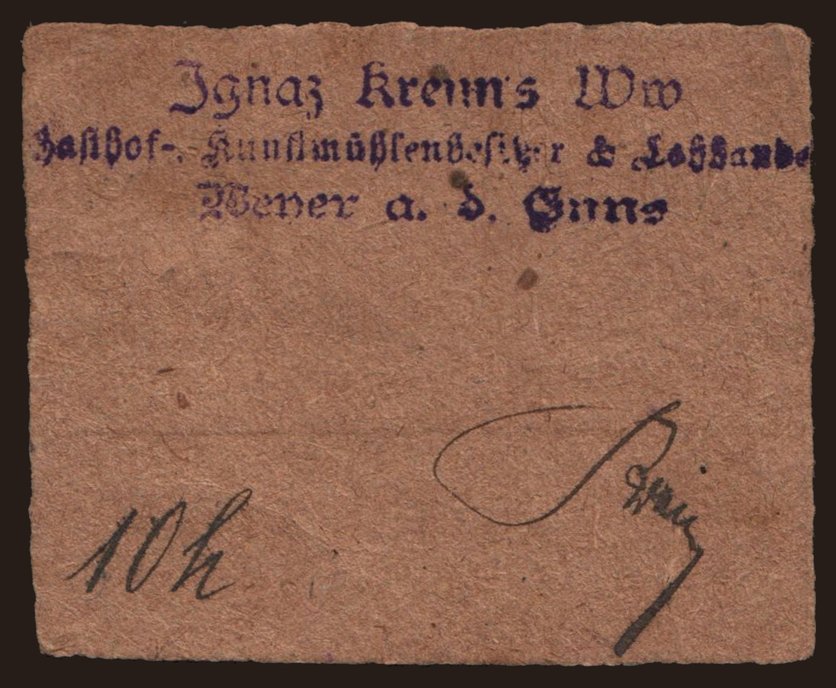 Ignaz Krenn's Ww
Gasthof-, Kunstmühlenbesitzer & Lohhande
Weyer a. d. Enns
10 h